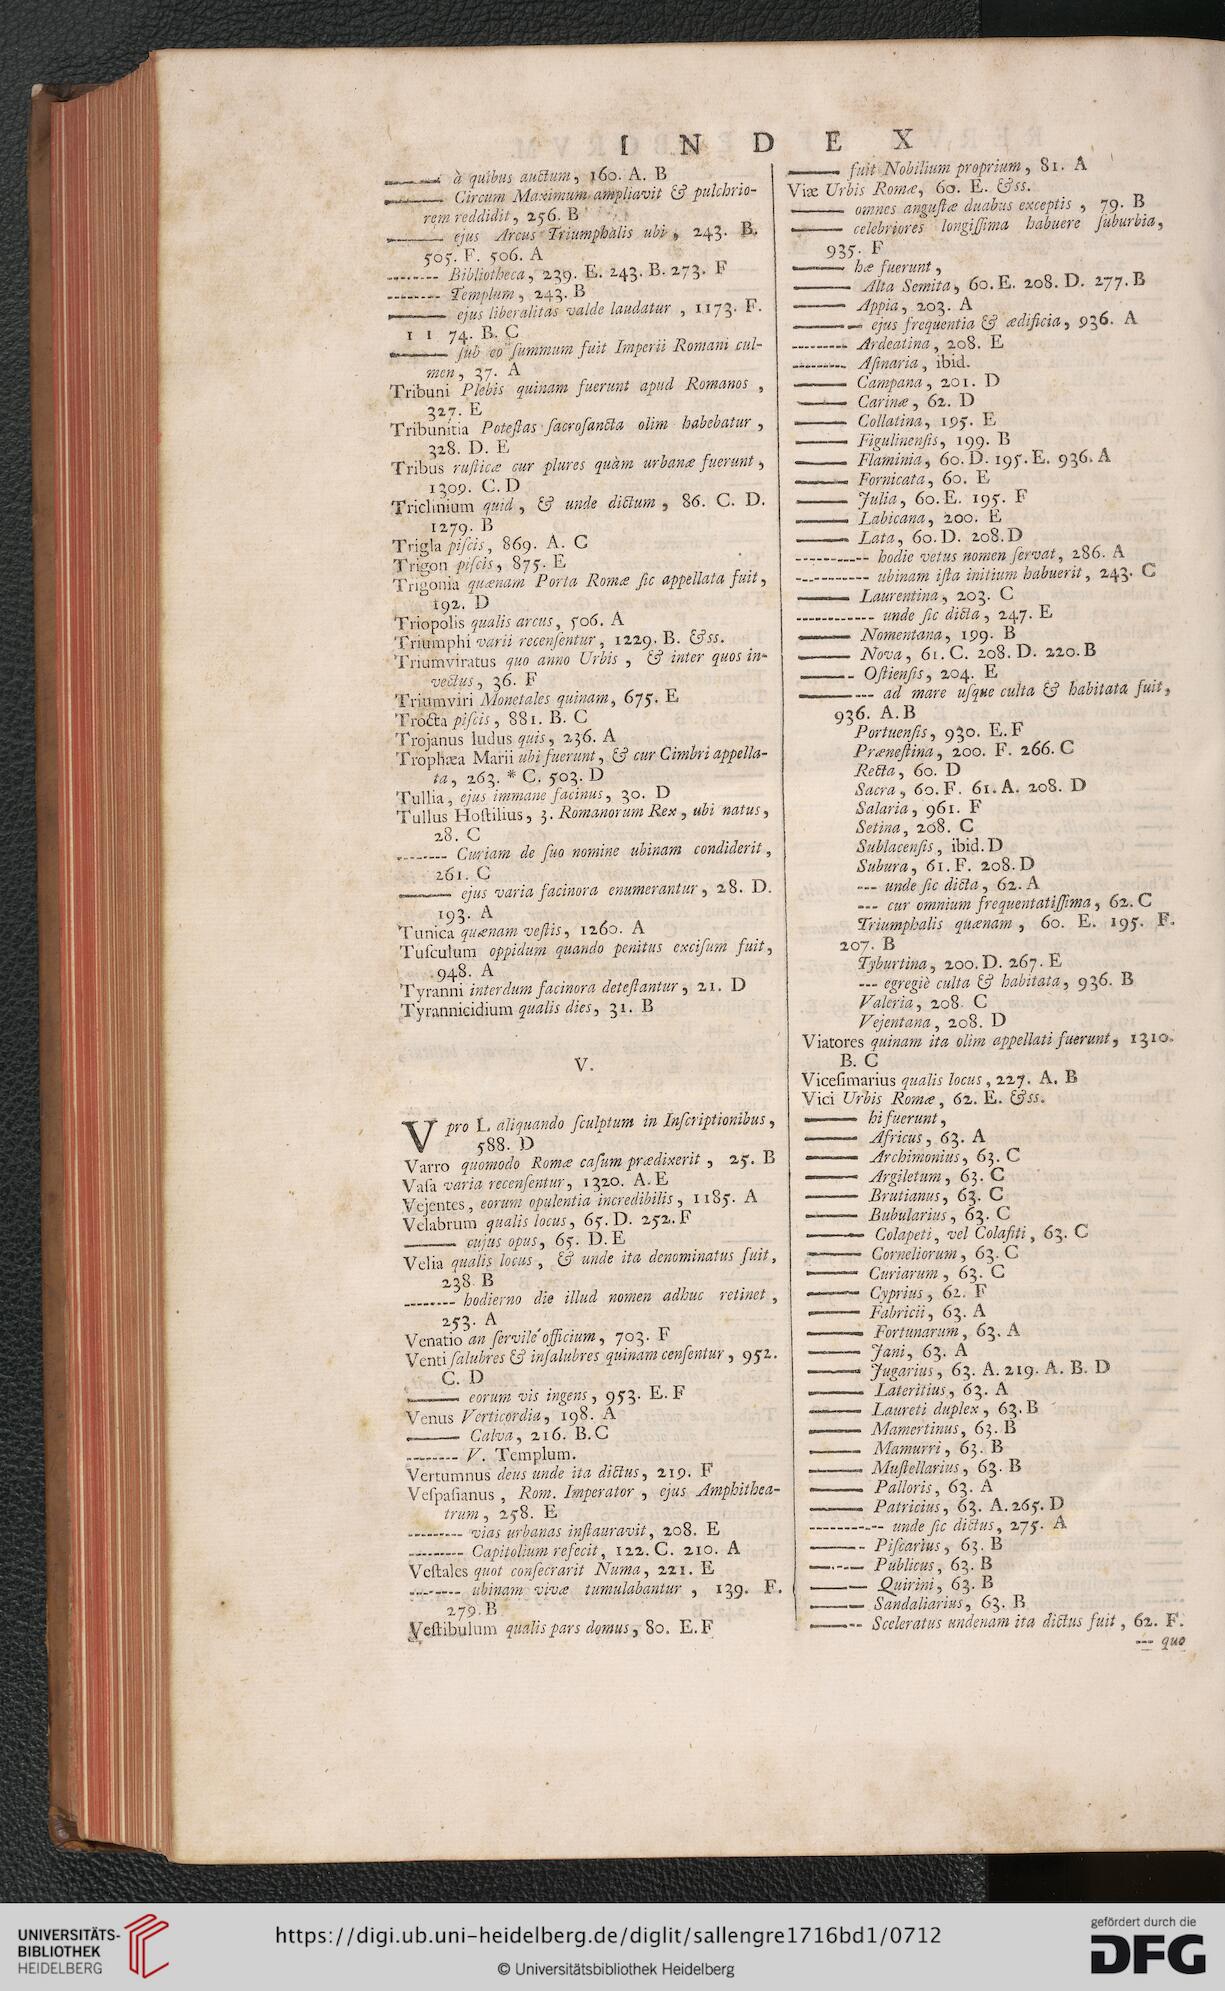 INDEX
——— à quibus auctum, 160. A. B
——— Circum Maximum ampliavit & pulchrio-
rem reddidit, 256. B
——— ejus Arcus Triumphalis ubi, 243. B.
505. F. 506. A
-------- Bibliotheca, 239. E. 243. B. 273. F
-------- Templum, 243. B
——— ejus liberalitas valde laudatur, 1173. F.
1 1 74. B. C
——— ſub eo ſummum fuit Imperii Romani cul-
men, 37. A
Tribuni Plebis quinam fuerunt apud Romanos,
327. E
Tribunitia Poteſtas ſacroſancta olim habebatur,
328. D. E
Tribus ruſticæ cur plures quàm urbanæ fuerunt,
1309. C. D
Triclinium quid, & unde dictum, 86. C. D.
1279. B
Trigla piſcis, 869. A. C
Trigon piſcis, 875. E
Trigonia quænam Porta Romæ ſic appellata fuit,
192. D
Triopolis qualis arcus, 506. A
Triumphi varii recenſentur, 1229. B. &ſs.
Triumviratus quo anno Urbis, & inter quos in-
vectus, 36. F
Triumviri Monetales quinam, 675. E
Trocta piſcis, 881. B. C
Trojanus ludus quis, 236. A
Trophæa Marii ubi fuerunt, & cur Cimbri appella-
ta, 263. * C. 503. D
Tullia, ejus immane facinus, 30. D
Tullus Hoſtilius, 3. Romanorum Rex, ubi natus,
28. C
-------- Curiam de ſuo nomine ubinam condiderit,
261. C
——— ejus varia facinora enumerantur, 28. D.
193. A
Tunica quænam veſtis, 1260. A
Tuſculum oppidum quando penitus exciſum fuit,
948. A
Tyranni interdum facinora deteſtantur, 21. D
Tyrannicidium qualis dies, 31. B
V.
V pro L aliquando ſculptum in Inſcriptionibus,
588. D
Varro quomodo Romæ caſum prædixerit, 25. B
Vaſa varia recenſentur, 1320. A. E
Vejentes, eorum opulentia incredibilis, 1185. A
Velabrum qualis locus, 65. D. 252. F
——— cujus opus, 65. D. E
Velia qualis locus, & unde ita denominatus fuit,
238. B
-------- hodierno die illud nomen adhuc retinet,
253. A
Venatio an ſervile officium, 703. F
Venti ſalubres & inſalubres quinam cenſentur, 952.
C. D
——— eorum vis ingens, 953. E. F
Venus Verticordia, 198. A
——— Calva, 216. B. C
-------- V. Templum.
Vertumnus deus unde ita dictus, 219. F
Veſpaſianus, Rom. Imperator, ejus Amphithea-
trum, 258. E
-------- vias urbanas inſtauravit, 208. E
-------- Capitolium refecit, 122. C. 210. A
Veſtales quot conſecrarit Numa, 221. E
-------- ubinam vivæ tumulabantur, 139. F.
279. B
Veſtibulum qualis pars domus, 80. E. F
——— fuit Nobilium proprium, 81. A
Viæ Urbis Romæ, 60. E. &ſs.
——— omnes anguſtæ duabus exceptis, 79. B
——— celebriores longiſſima habuere ſuburbia,
935. F
——— hæ fuerunt,
——— Alta Semita, 60. E. 208. D. 277. B
——— Appia, 203. A
——— - ejus frequentia & ædificia, 936. A
-------- Ardeatina, 208. E
-------- Aſinaria, ibid.
——— Campana, 201. D
——— Carinæ, 62. D
——— Collatina, 195. E
——— Figulinenſis, 199. B
——— Flaminia, 60. D. 195. E. 936. A
——— Fornicata, 60. E
——— Julia, 60. E. 195. F
——— Labicana, 200. E
——— Lata, 60. D. 208. D
----------- hodie vetus nomen ſervat, 286. A
----------- ubinam iſta initium habuerit, 243. C
——— Laurentina, 203. C
----------- unde ſic dicta, 247. E
——— Nomentana, 199. B
——— Nova, 61. C. 208. D. 220. B
——— - Oſtienſis, 204. E
——— --- ad mare uſque culta & habitata fuit,
936. A. B
Portuenſis, 930. E. F
Præneſtina, 200. F. 266. C
Recta, 60. D
Sacra, 60. F. 61. A. 208. D
Salaria, 961. F
Setina, 208. C
Sublacenſis, ibid. D
Subura, 61. F. 208. D
--- unde ſic dicta, 62. A
--- cur omnium frequentatiſſima, 62. C
Triumphalis quænam, 60. E. 195. F.
207. B
Tyburtina, 200. D. 267. E
--- egregiè culta & habitata, 936. B
Valeria, 208. C
Vejentana, 208. D
Viatores quinam ita olim appellati fuerunt, 1310.
B. C
Viceſimarius qualis locus, 227. A. B
Vici Urbis Romæ, 62. E. &ſs.
——— hi fuerunt,
——— Africus, 63. A
——— Archimonius, 63. C
——— Argiletum, 63. C
——— Brutianus, 63. C
——— Bubularius, 63. C
——— Colapeti, vel Colaſiti, 63. C
——— Corneliorum, 63. C
——— Curiarum, 63. C
——— Cyprius, 62. F
——— Fabricii, 63. A
——— Fortunarum, 63. A
——— Jani, 63. A
——— Jugarius, 63. A. 219. A. B. D
——— Lateritius, 63. A
——— Laureti duplex, 63. B
——— Mamertinus, 63. B
——— Mamurri, 63. B
——— Muſtellarius, 63. B
——— Palloris, 63. A
——— Patricius, 63. A. 265. D
----------- unde ſic dictus, 275. A
——— - Piſcarius, 63. B
——— Publicus, 63. B
——— Quirini, 63. B
——— Sandaliarius, 63. B
——— -- Sceleratus undenam ita dictus fuit, 62. F.
--- quo
UNIVERSITÄTS-
BIBLIOTHEK
HEIDELBERG
https://digi.ub.uni-heidelberg.de/diglit/sallengre1716bd1/0712
© Universitätsbibliothek Heidelberg
gefördert durch die
DFG